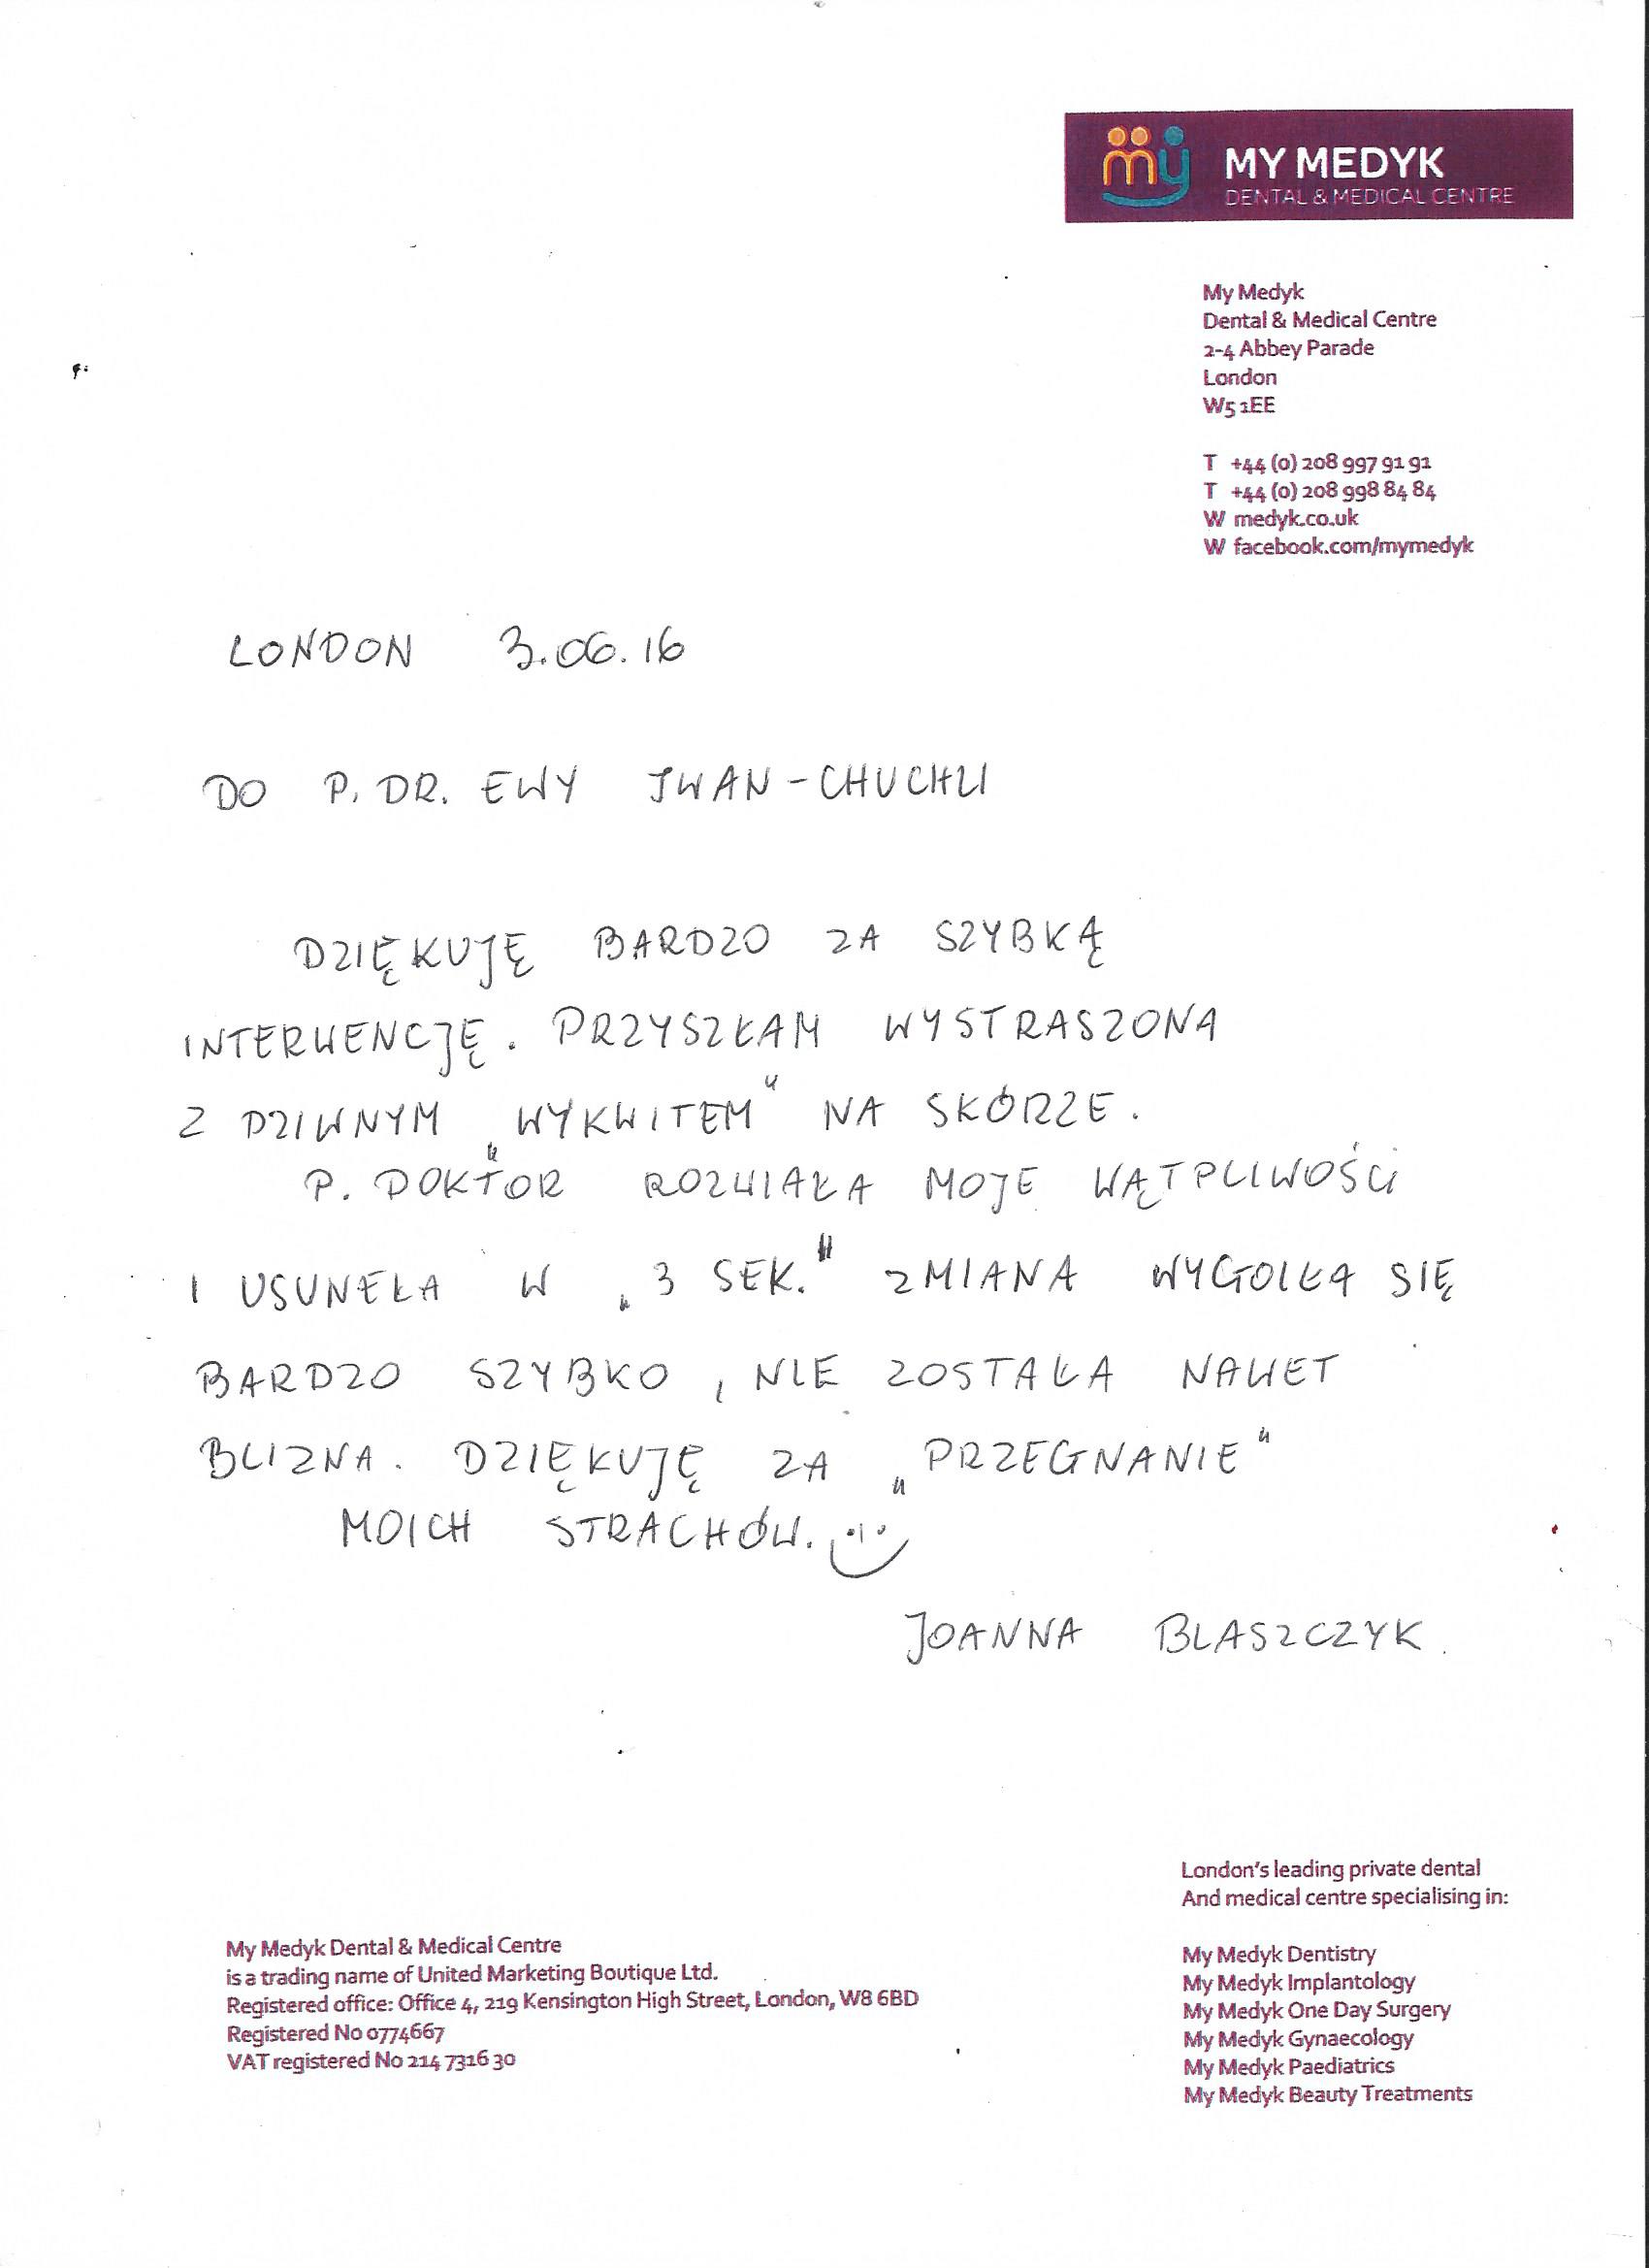 my MY MEDYK
DENTAL & MEDICAL CENTRE
My Medyk
Dental & Medical Centre
2-4 Abbey Parade
London
W5 1EE
T +44 (0) 208 997 91 91
T +44 (0) 208 998 84 84
W medyk.co.uk
W facebook.com/mymedyk
LONDON 3.06.16
DO P. DR. EWY IWAN-CHUCHLI
DZIĘKUJĘ BARDZO ZA SZYBKĄ
INTERWENCJĘ. PRZYSZŁAM WYSTRASZONA
Z DZIWNYM „WYKWITEM" NA SKÓRZE.
P. DOKTOR ROZWIAŁA MOJE WĄTPLIWOŚCI
I USUNEŁA W „3 SEK." ZMIANA WYGOIŁA SIĘ
BARDZO SZYBKO, NIE ZOSTAŁA NAWET
BLIZNA. DZIĘKUJĘ ZA „PRZEGNANIE"
MOICH STRACHÓW.
JOANNA BLASZCZYK.
London's leading private dental
And medical centre specialising in:
My Medyk Dentistry
My Medyk Implantology
My Medyk One Day Surgery
My Medyk Gynaecology
My Medyk Paediatrics
My Medyk Beauty Treatments
My Medyk Dental & Medical Centre
is a trading name of United Marketing Boutique Ltd.
Registered office: Office 4, 219 Kensington High Street, London, W8 6BD
Registered No 0774667
VAT registered No 214 7316 30